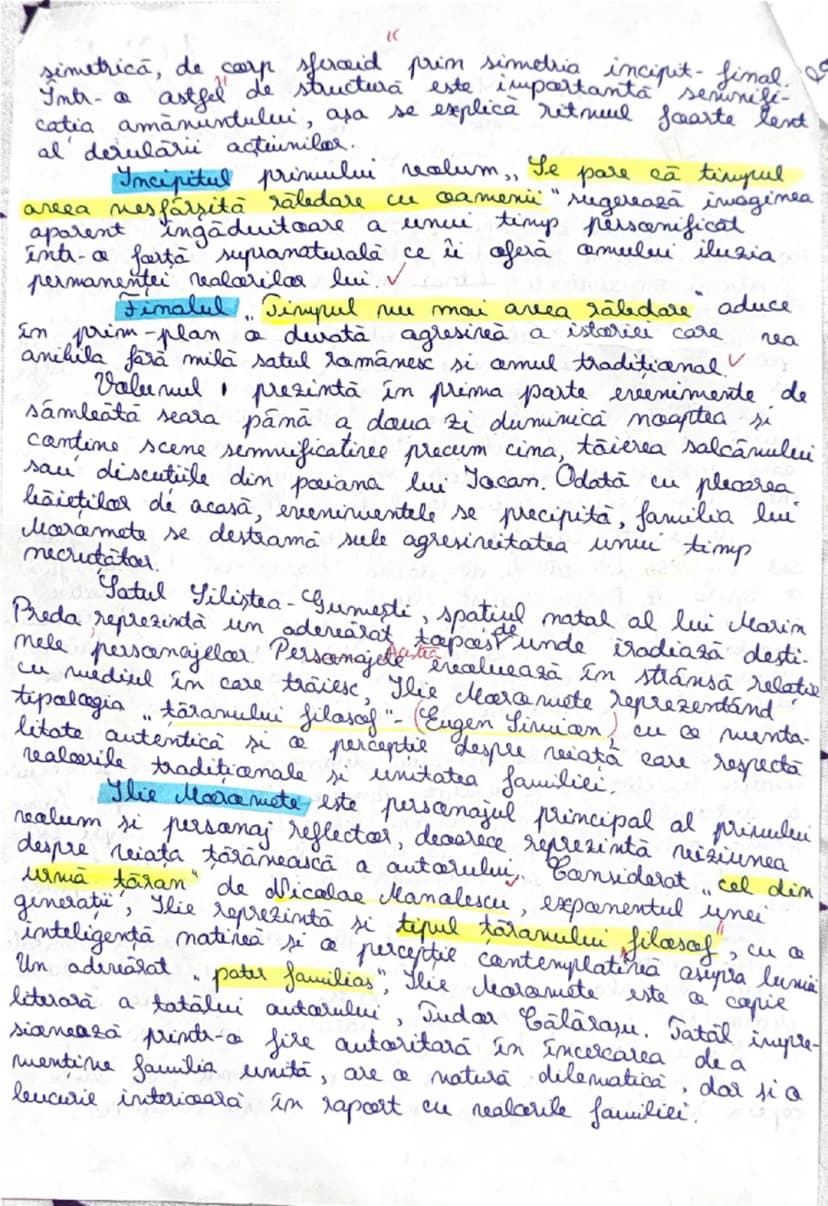 simetrică, de "corp sferoid" prin simetria incipit- final.
Într- o astfel de structură este importantă semnifi-
cația amănuntului, așa se explică ritmul foarte lent
al derulării acțiunilor.
Incipitul primului volum „ Se pare că timpul
avea nesfârșită răbdare cu oamenii" sugerează imaginea
aparent îngăduitoare a unui timp personificat
într-o forță supranaturală ce îi oferă omului iluzia
permanenței valorilor lui.
Finalul „Timpul nu mai avea răbdare" aduce
în prim-plan o durată agresivă a istoriei care va
anihila fără milă satul românesc și omul tradițional.
Volumul 1 prezintă în prima parte evenimente de
sâmbătă seara până a doua zi duminică noaptea și
conține scene semnificative precum cina, tăierea salcâmului
sau discuțiile din poiana lui Iocan. Odată cu plecarea
băieților de acasă, evenimentele se precipită, familia lui
Moromete se destramă sub agresivitatea unui timp
necruțător.
Satul Siliștea-Gumești, spațiul natal al lui Marin
Preda, reprezintă un adevărat topos de unde iradiază desti-
nele personajelor. Personajele evoluează în strânsă relație
cu mediul în care trăiesc, Ilie Moromete reprezentând
tipologia "țăranului filosof"- (Eugen Simion) cu o menta-
litate autentică și o percepție despre viață care respectă
valorile tradiționale și unitatea familiei.
Ilie Moromete este personajul principal al primului
volum și personaj reflector, deoarece reprezintă viziunea
despre viața țărănească a autorului. Considerat „cel din
urmă țăran" de Nicolae Manolescu, exponentul unei
generații, Ilie reprezintă și tipul țăranului filosof", cu o
inteligență nativă și o percepție contemplativă asupra lumii
Un adevărat pater familias", Ilie Moromete este o copie
literară a tatălui autorului, Tudor Călărașu. Tatăl impre-
sionează printr-o fire autoritară în încercarea de a
menține familia unită, are o natură dilematică, dar și o
bucurie interioară în raport cu valorile familiei.